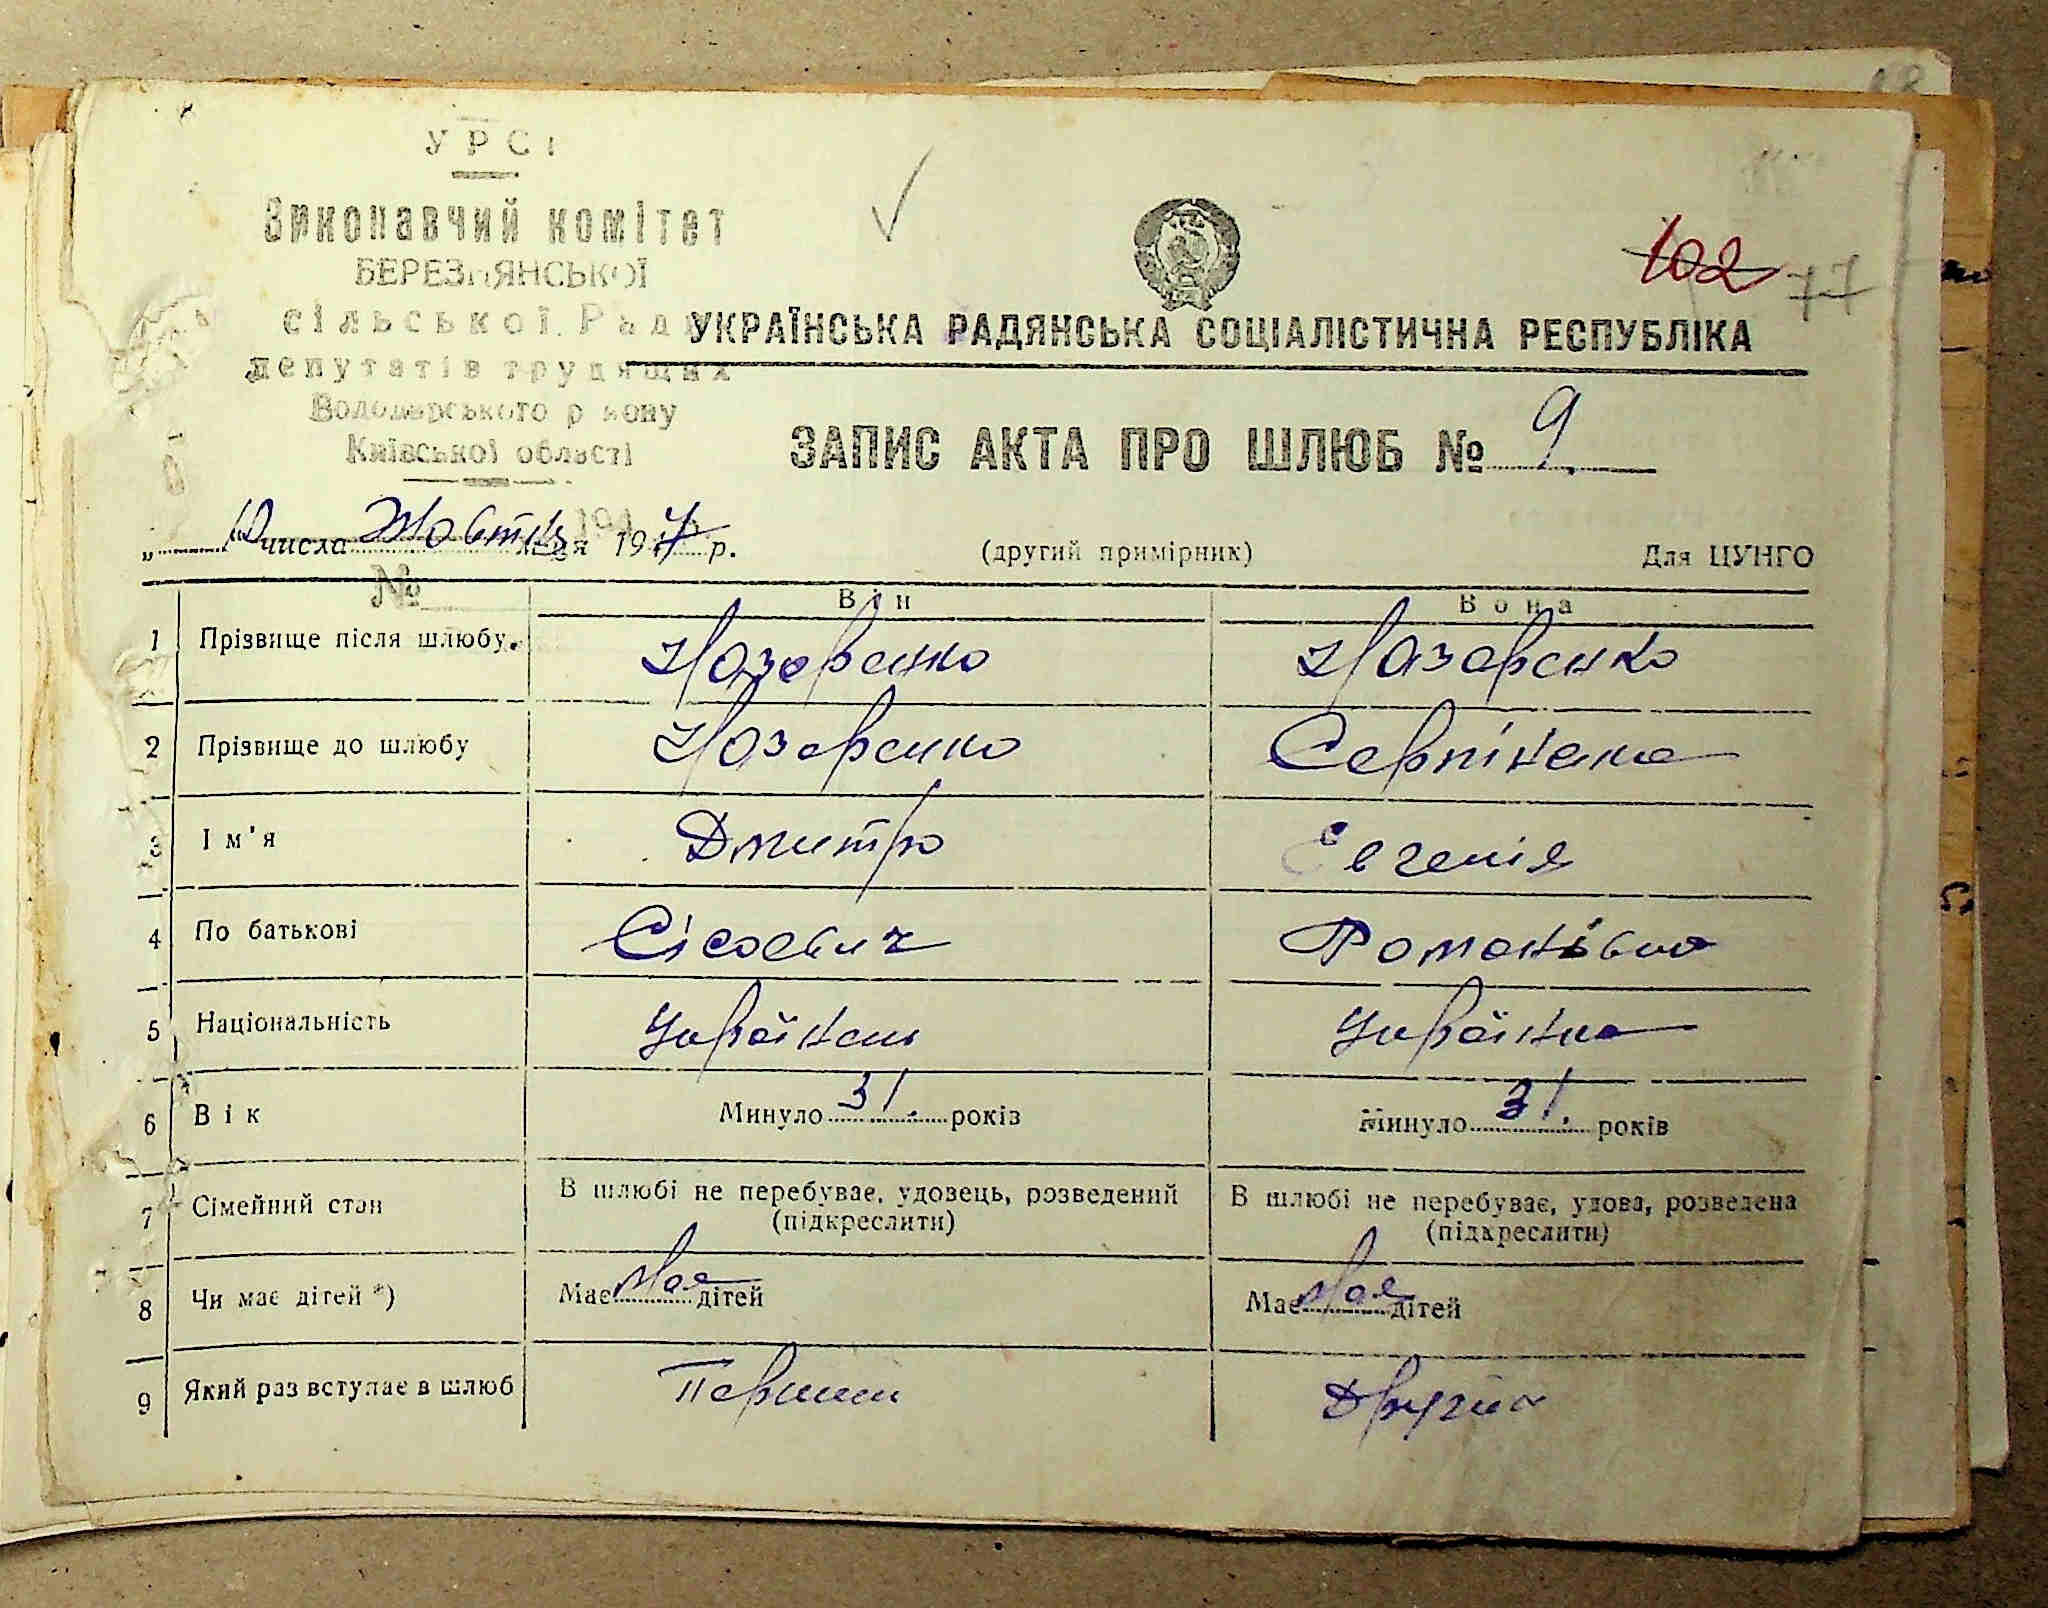 УРС
Виконавчий комітет
БЕРЕЗНЯНСЬКОЇ
сільської Ради
депутатів трудящих
Володарського району
Київської області
102 77
УКРАЇНСЬКА РАДЯНСЬКА СОЦІАЛІСТИЧНА РЕСПУБЛІКА
ЗАПИС АКТА ПРО ШЛЮБ № 9.
„ 10 числа Жовтня 1947 р. (другий примірник) Для ЦУНГО
№
Він Вона
1 Прізвище після шлюбу. Назаренко Назаренко
2 Прізвище до шлюбу Назаренко
3 Ім'я Дмитро Евгенія
4 По батькові Сісоевич Романівна
5 Національність Українець Українка
6 Вік Минуло 31. років Минуло 31. років
7 Сімейний стан В шлюбі не перебуває, удовець, розведений В шлюбі не перебуває, удова, розведена
(підкреслити) (підкреслити)
8 Чи має дітей *) Має дітей Має дітей
9 Який раз вступає в шлюб Перший Другий